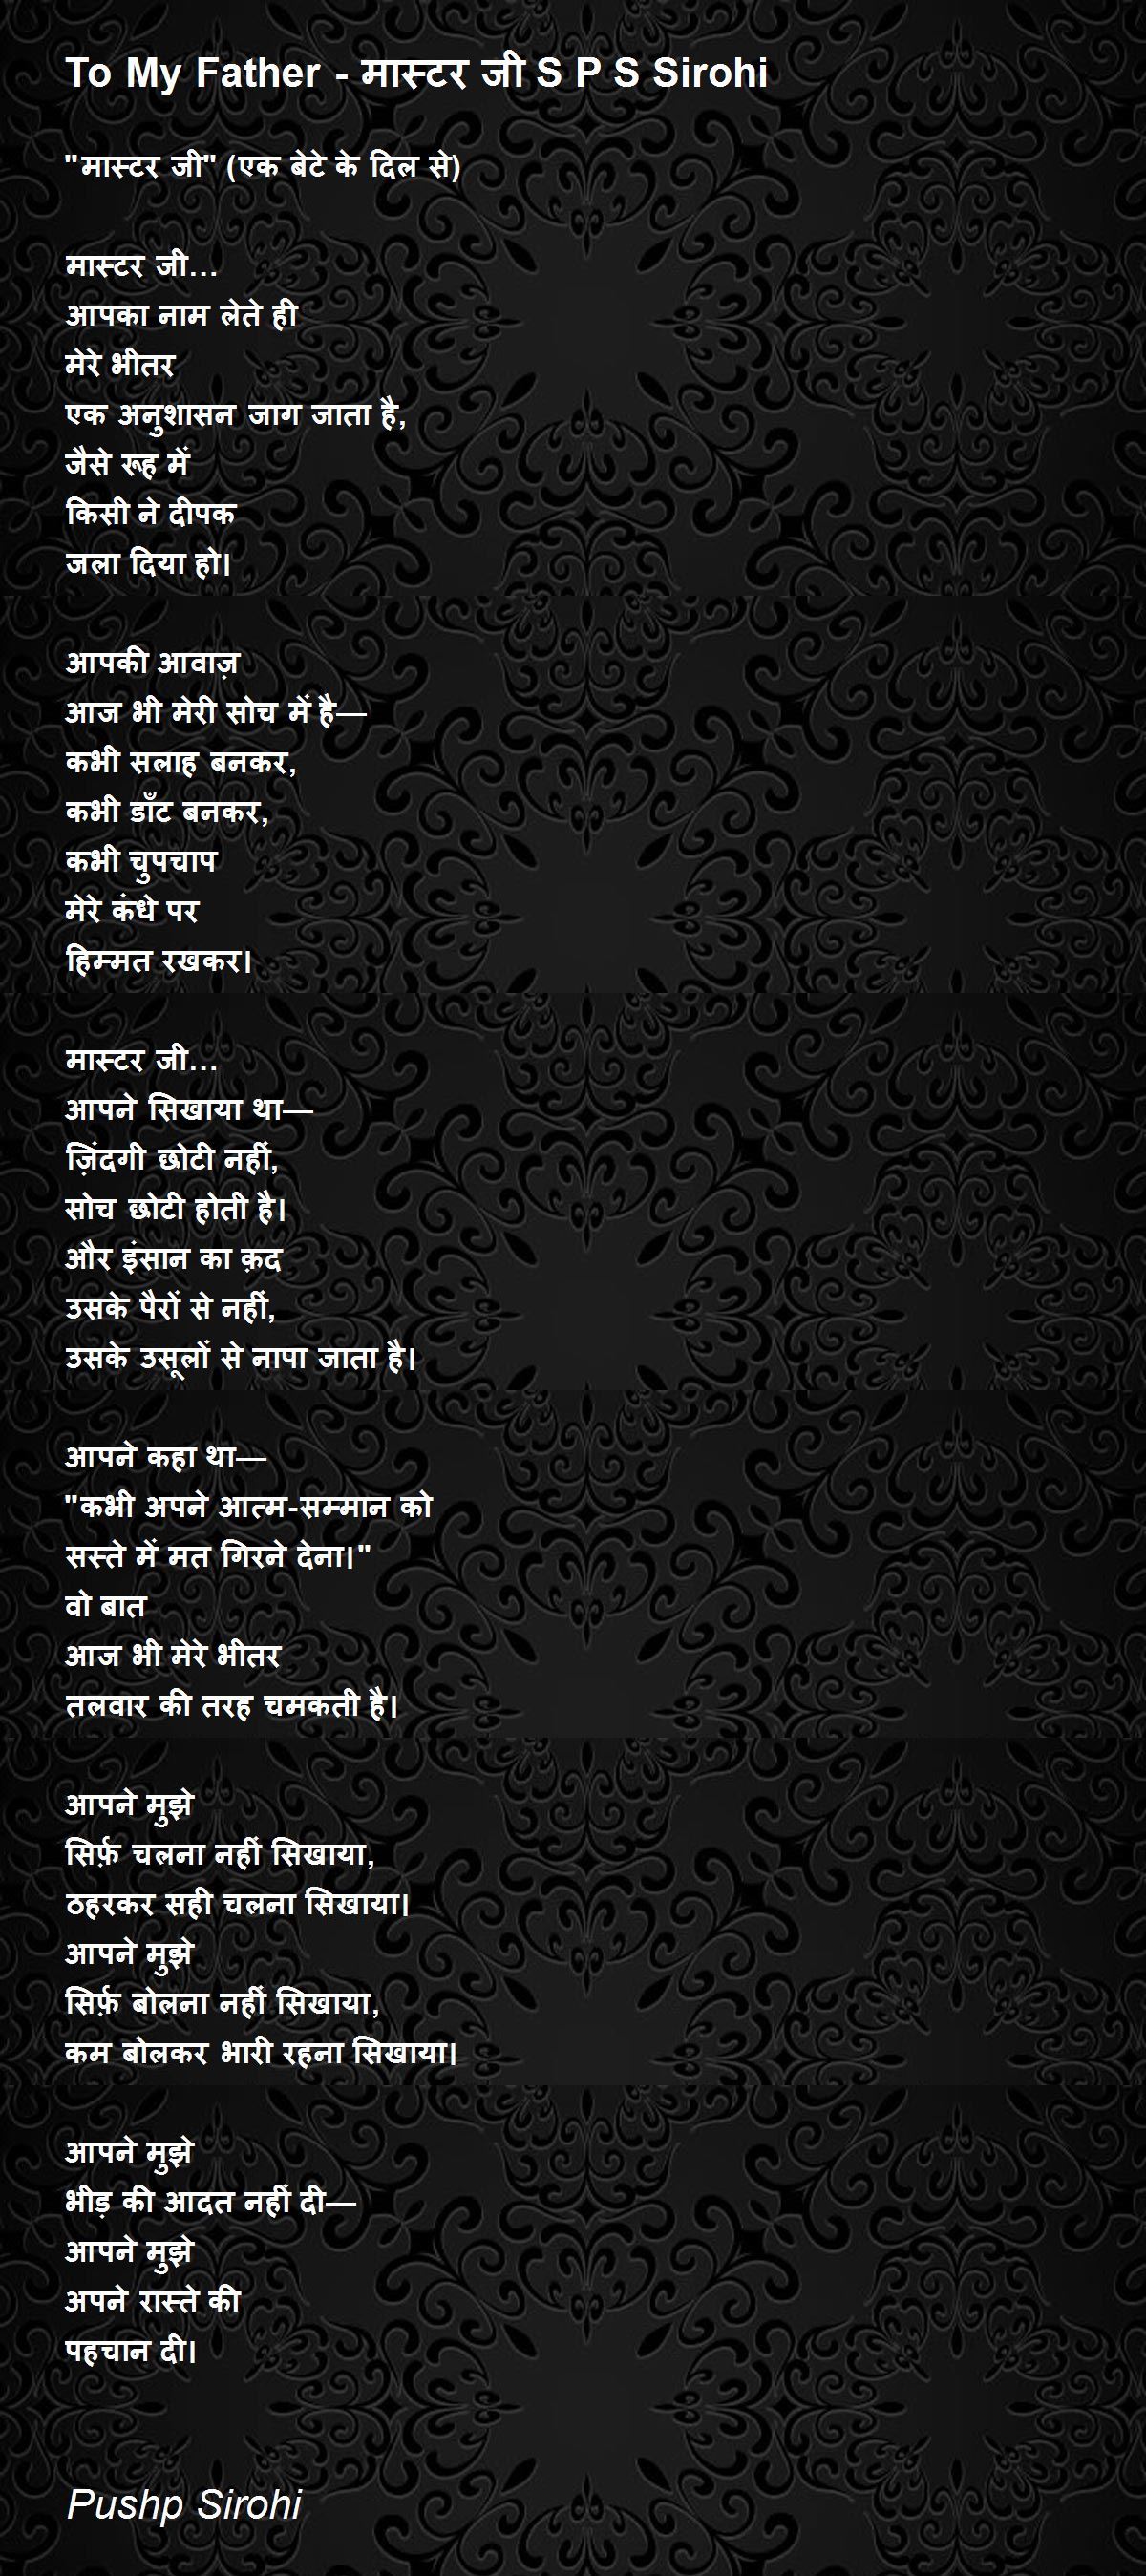 To My Father - मास्टर जी S P S Sirohi
"मास्टर जी" (एक बेटे के दिल से)
मास्टर जी...
आपका नाम लेते ही
मेरे भीतर
एक अनुशासन जाग जाता है,
जैसे रूह में
किसी ने दीपक
जला दिया हो।
आपकी आवाज़
आज भी मेरी सोच में है—
कभी सलाह बनकर,
कभी डाँट बनकर,
कभी चुपचाप
मेरे कंधे पर
हिम्मत रखकर।
मास्टर जी...
आपने सिखाया था—
ज़िंदगी छोटी नहीं,
सोच छोटी होती है।
और इंसान का क़द
उसके पैरों से नहीं,
उसके उसूलों से नापा जाता है।
आपने कहा था—
"कभी अपने आत्म-सम्मान को
सस्ते में मत गिरने देना।"
वो बात
आज भी मेरे भीतर
तलवार की तरह चमकती है।
आपने मुझे
सिर्फ़ चलना नहीं सिखाया,
ठहरकर सही चलना सिखाया।
आपने मुझे
सिर्फ़ बोलना नहीं सिखाया,
कम बोलकर भारी रहना सिखाया।
आपने मुझे
भीड़ की आदत नहीं दी—
आपने मुझे
अपने रास्ते की
पहचान दी।
Pushp Sirohi